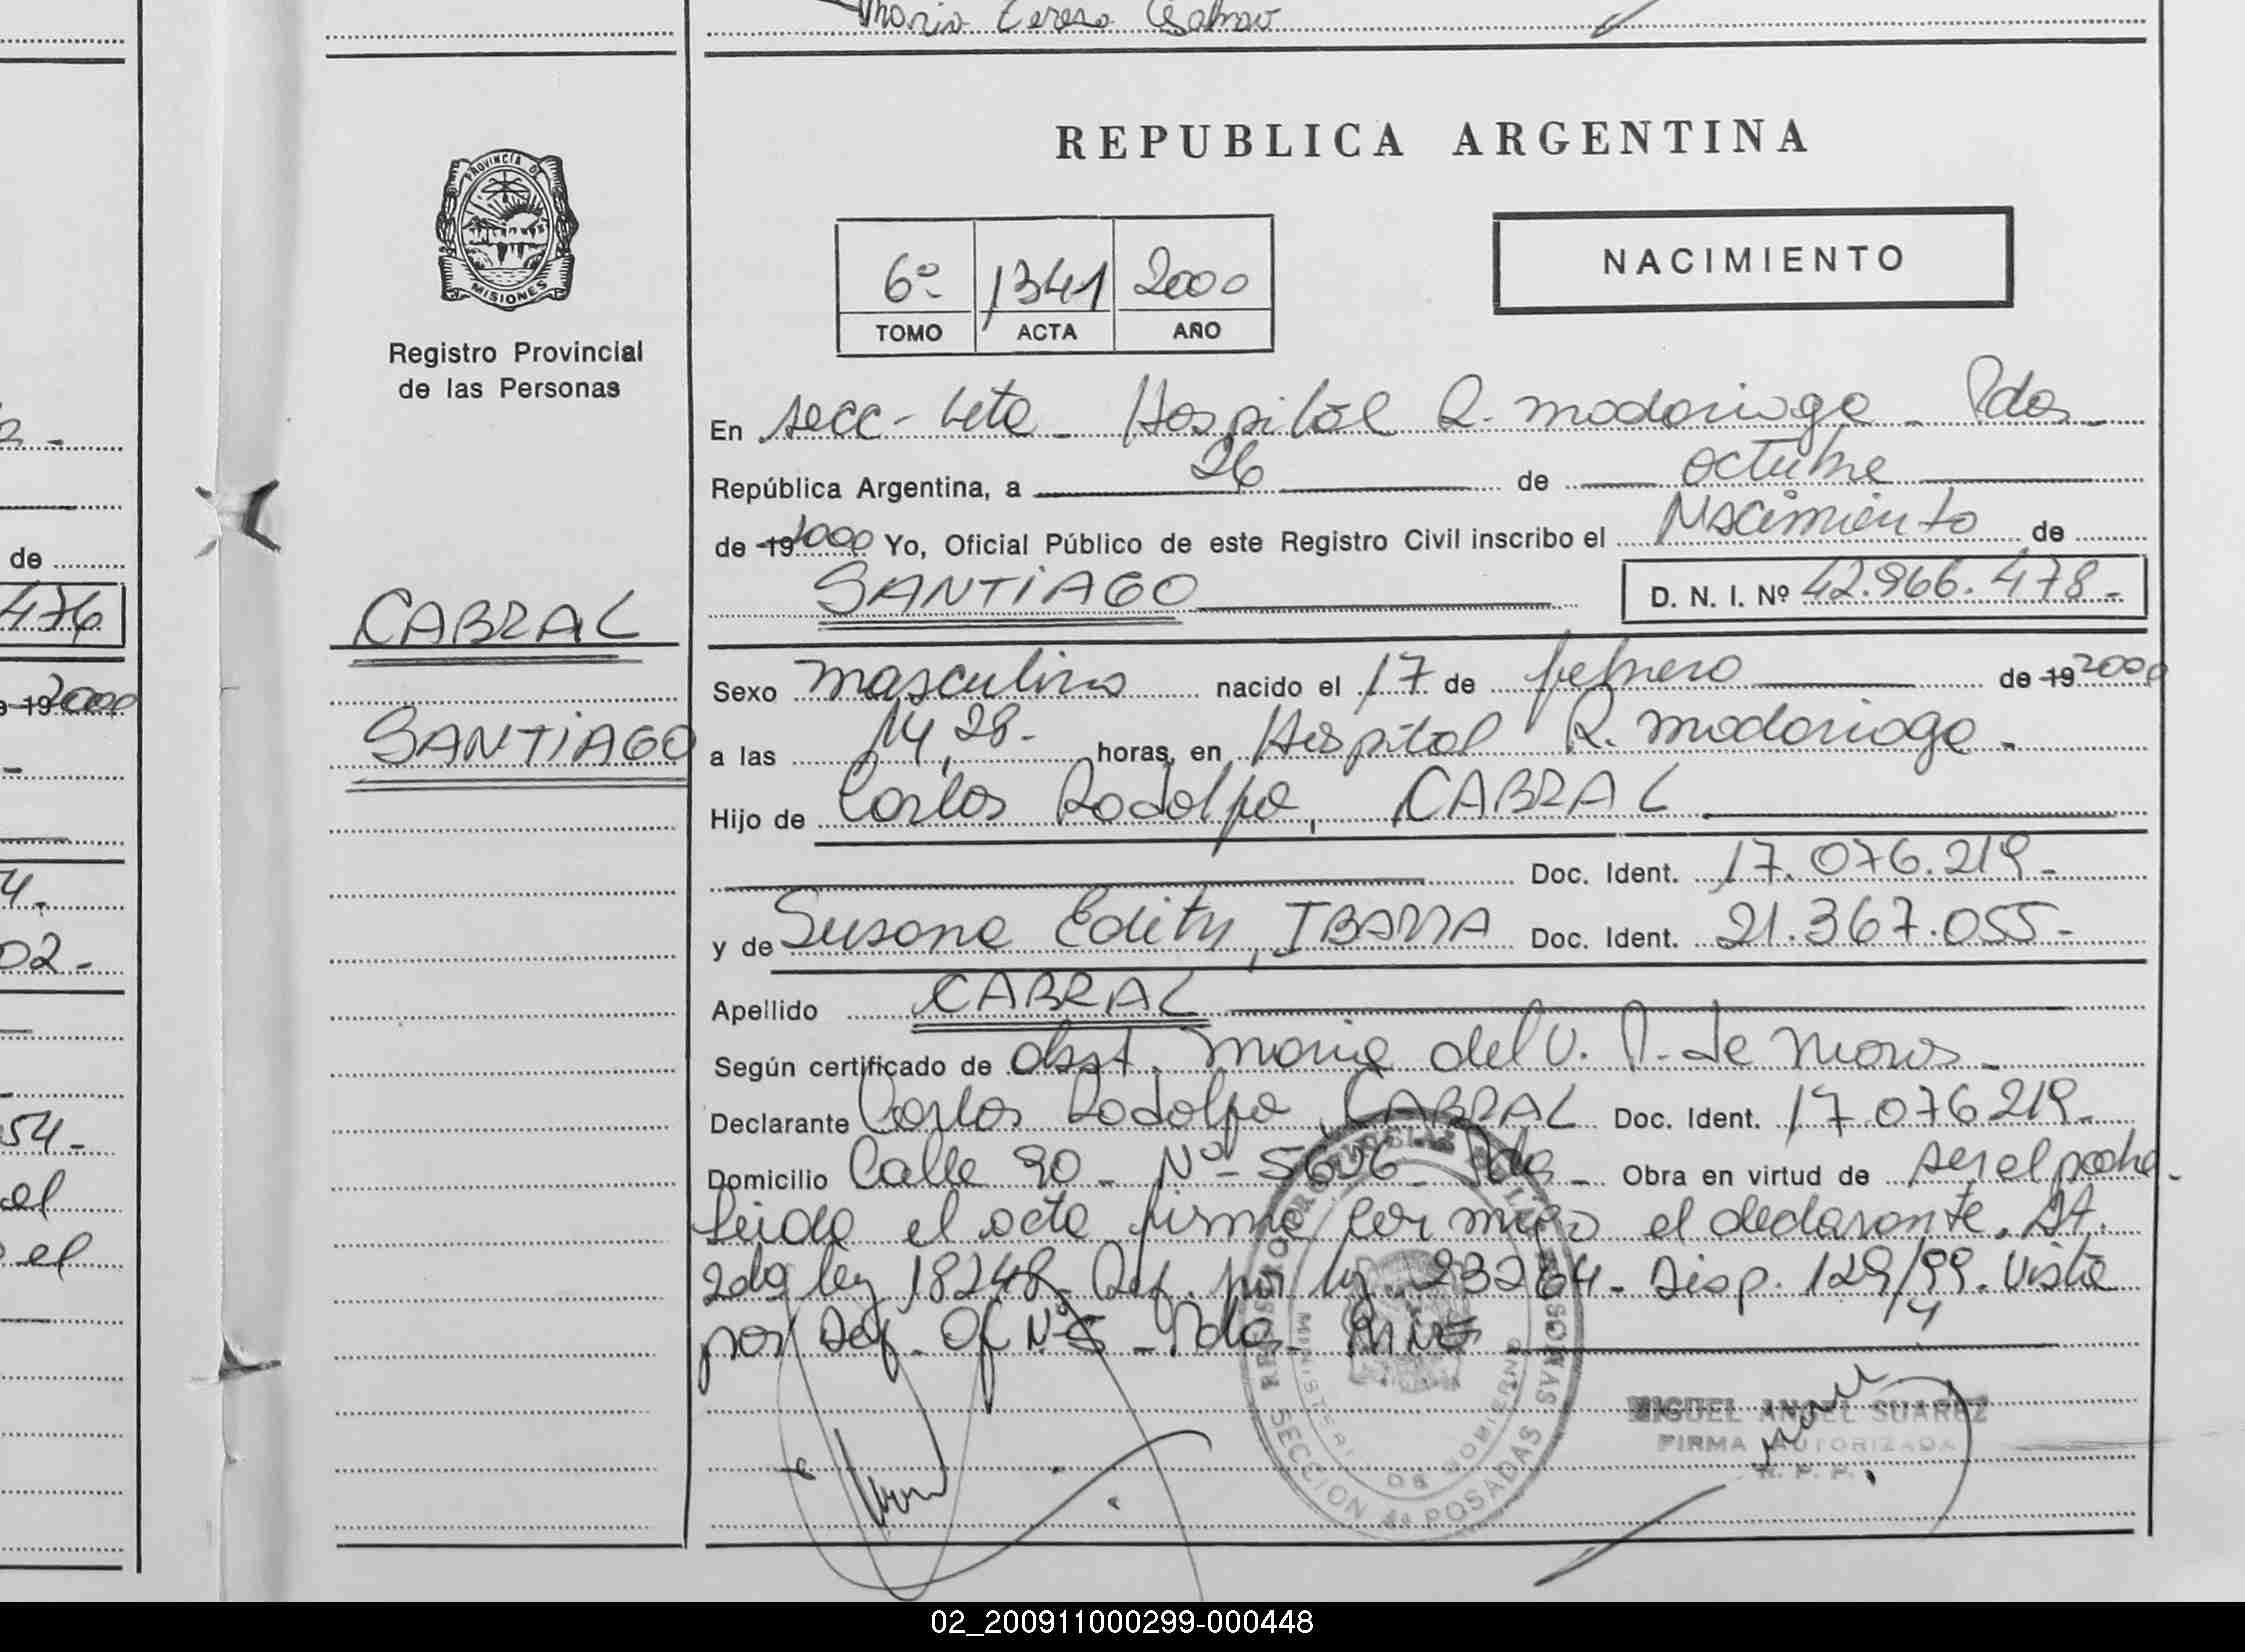 Maria Teresa
REPUBLICA ARGENTINA
PROVINCIA DE
MISIONES
Registro Provincial
de las Personas
6º 1341 2000
TOMO ACTA AÑO
NACIMIENTO
En secc- 4ta - Hospital R. Madariaga - Pdas -
República Argentina, a 26 de octubre
de 19 2000 Yo, Oficial Público de este Registro Civil inscribo el Nacimiento de
SANTIAGO D. N. I. Nº 42.966.478-
CABRAL
SANTIAGO
Sexo masculino nacido el 17 de febrero de 19 2000
a las 14,28- horas, en Hospital R. Madariaga -
Hijo de Carlos Rodolfo, CABRAL
Doc. Ident. 17.076.219-
y de Susana Edith, IBARRA Doc. Ident. 21.367.055-
Apellido CABRAL
Según certificado de obst. Maria del V. P. de
Declarante Carlos Rodolfo, CABRAL Doc. Ident. 17.076.219-
Domicilio Calle 90 - Nº - 5606 - Pdas - Obra en virtud de ser el padre -
Leida el acta firma con migo el declarante. At.
2do ley 18248 - Ref. por ley 23264 - Disp. 129/99. Vista
por Def. Of Nº 5 - Pdas -
MIGUEL ANGEL SUAREZ
FIRMA AUTORIZADA
R. P. P.
MINISTERIO DE GOBIERNO
SECCION 4ª POSADAS
476
de
19 2000
4.
02-
54-
el
el
02_200911000299-000448